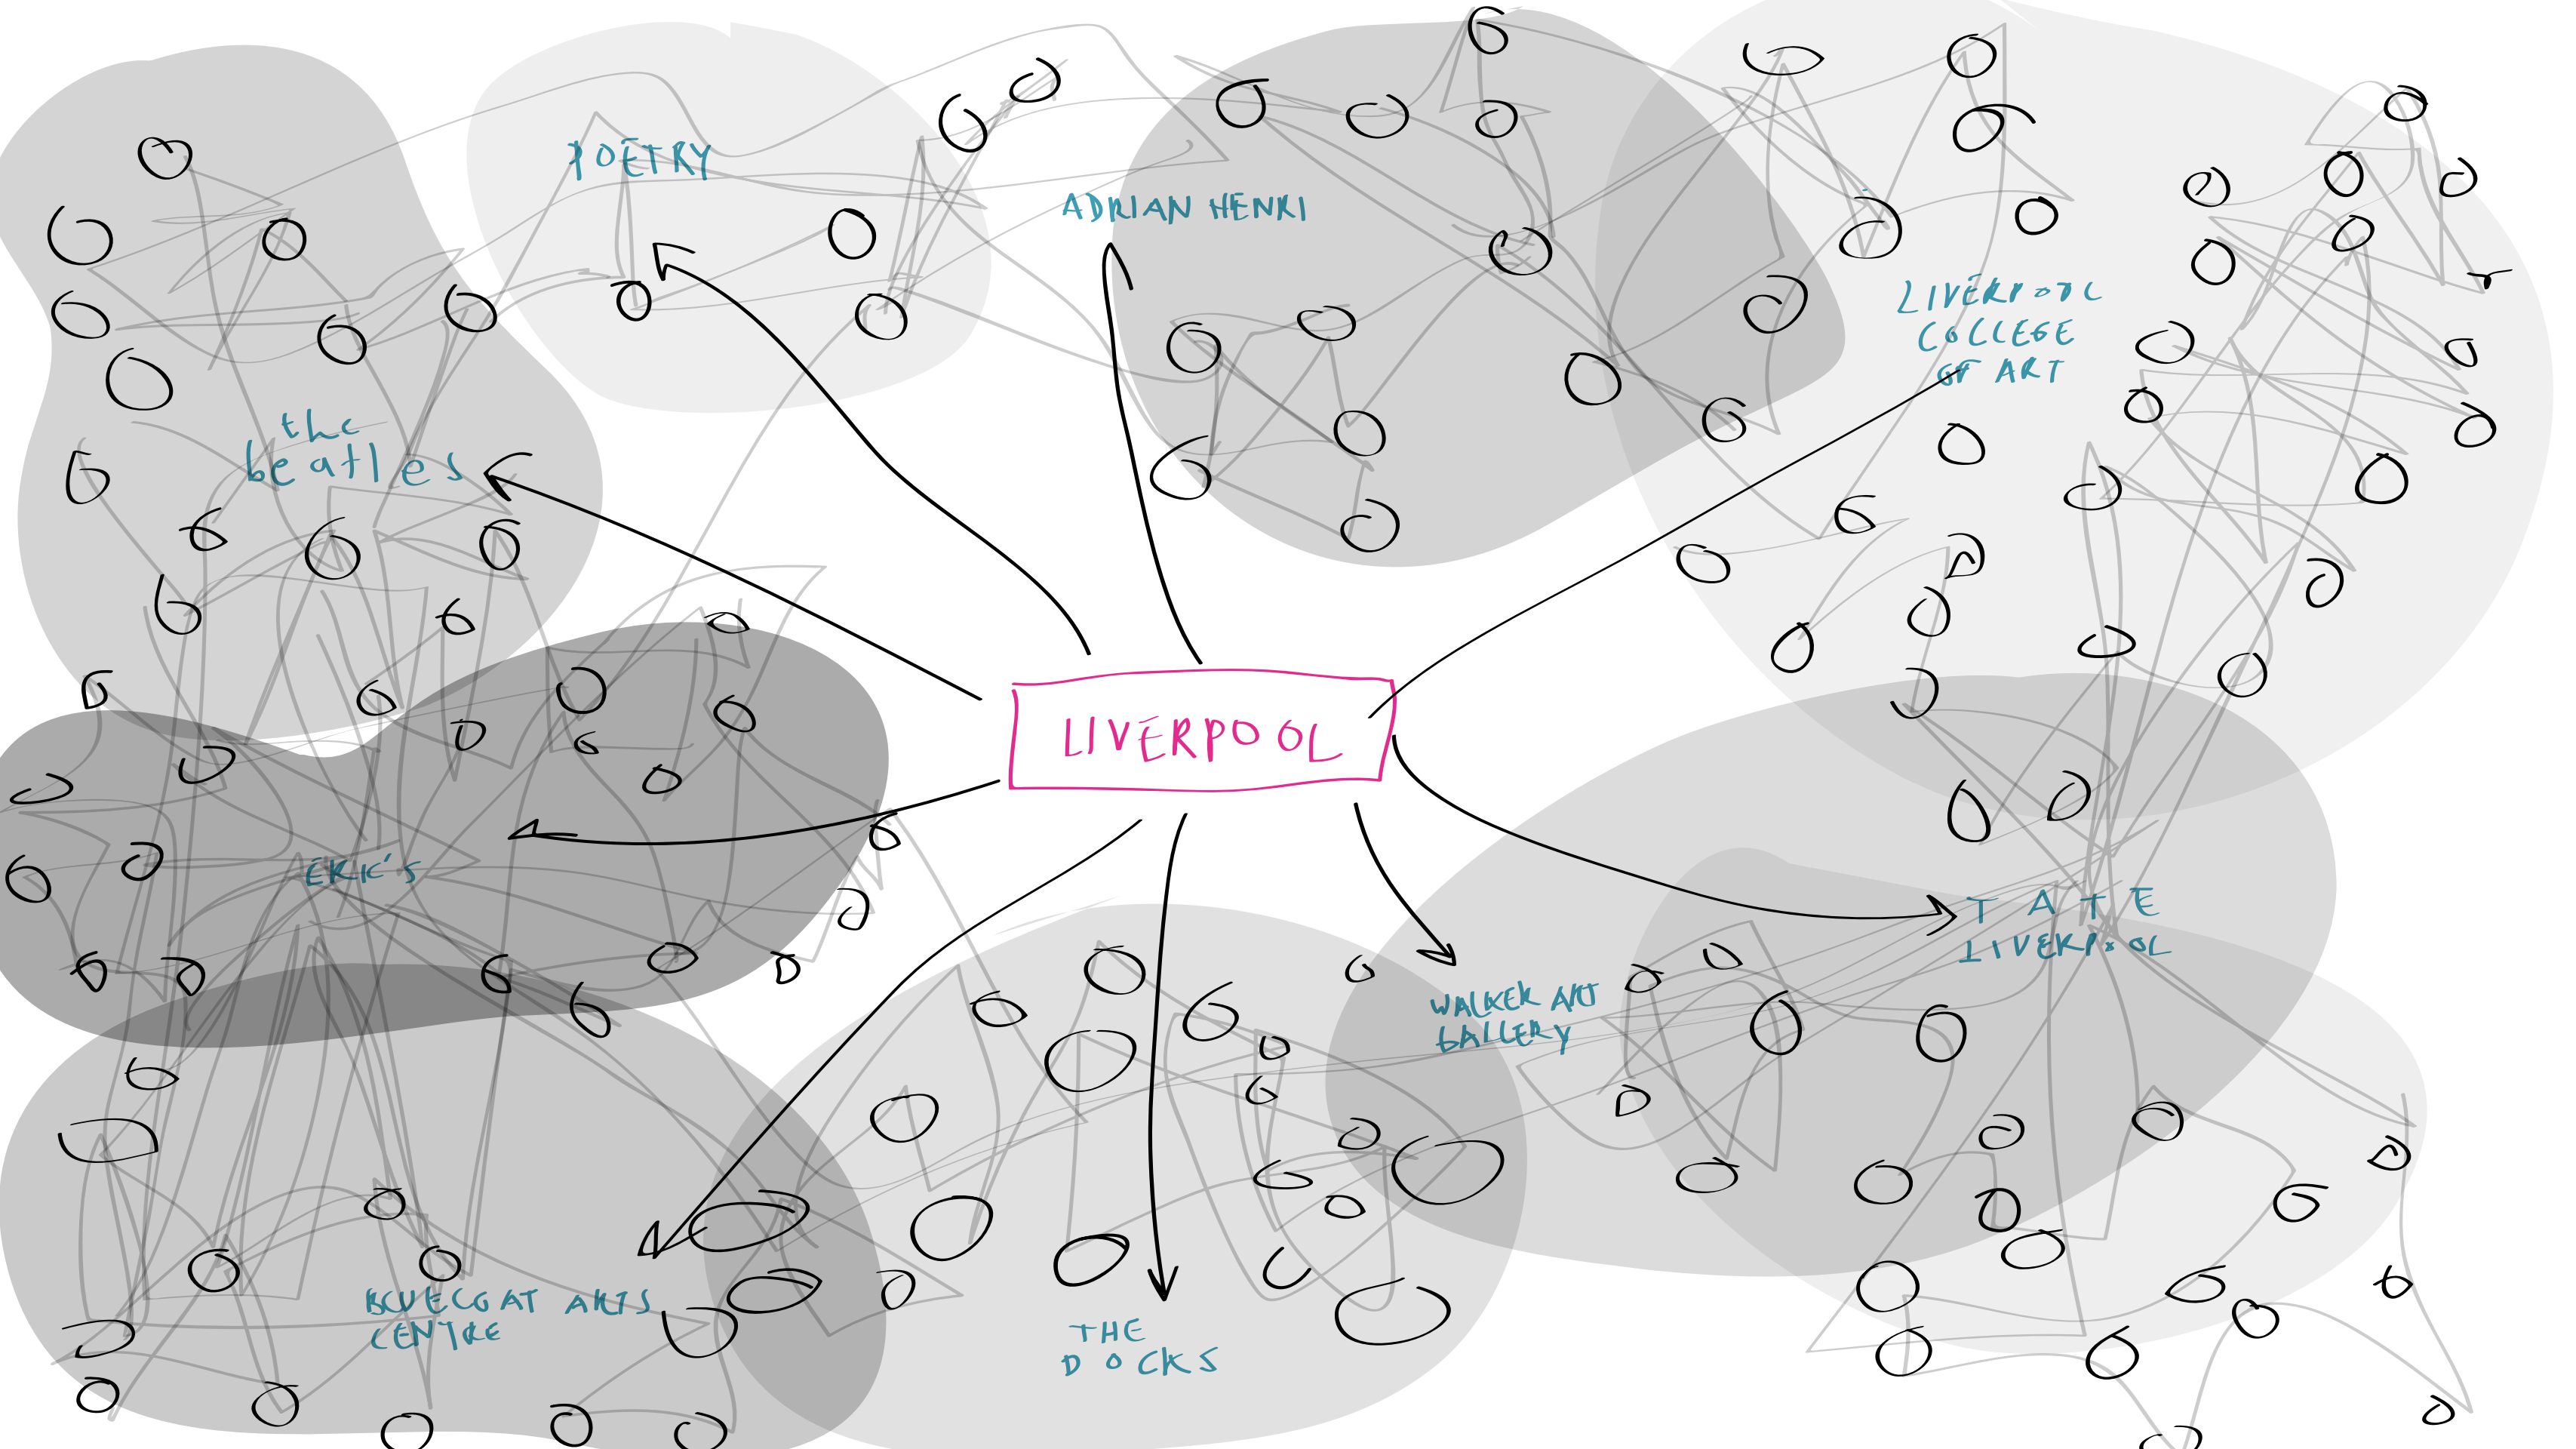 POETRY
ADRIAN HENRI
LIVERPOOL
COLLEGE
OF ART
the
beatles
LIVERPOOL
ERIC'S
TATE
LIVERPOOL
WALKER ART
GALLERY
BLUECOAT ARTS
CENTRE
THE
DOCKS